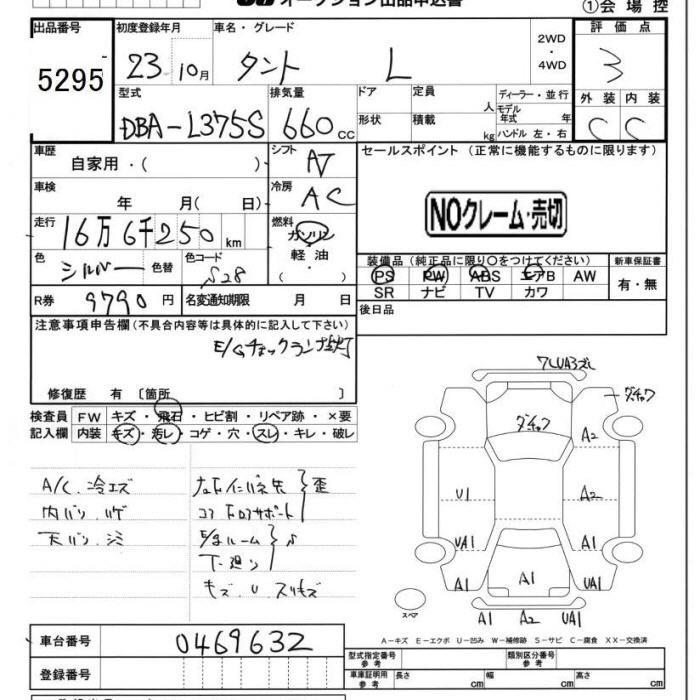 オークション出品申込書
①会場控
出品番号 初度登録年月 車名・グレード 2WD・4WD 評価点
5295 23・10月 タント L 3
型式 排気量 ドア 定員 人 ディーラー・並行 外装 内装
DBA-L375S 660cc 形状 積載 kg モデル年式 年 ハンドル 左・右 C C
車歴 自家用・( ) シフト AT セールスポイント (正常に機能するものに限ります)
車検 年 月( 日) 冷房 AC
NOクレーム・売切
走行 16万6千250km 燃料 ガソリン・軽油・( )
色 シルバー 色替 色コード S28
装備品(純正品に限り○をつけてください) 新車保証書
PS PW ABS エアB AW 有・無
SR ナビ TV カワ
R券 9790円 名変通知期限 月 日 後日品
注意事項申告欄(不具合内容等は具体的に記入して下さい)
E/Gチェックランプ点灯
修復歴 有 〔箇所 〕
検査員記入欄 FW キズ・飛石・ヒビ割・リペア跡・×要
内装 キズ・汚レ・コゲ・穴・スレ・キレ・破レ
A/C 冷エズ
内バリ ハゲ
天バリ シミ
コアロアサポート
歪
下廻り
キズ U スリキズ
ダ.チャク
ダ.チャク
A2
U1
A2
UA1
A1
A1
A1
UA1
A1 A2 UA1
スペア
A-キズ E-エクボ U-凹み W-補修跡 S-サビ C-腐食 XX-交換済
車台番号 0469632
登録番号
型式指定番号 参考 類別区分番号 参考
車庫証明用 参考 長さ cm 幅 cm 高さ cm